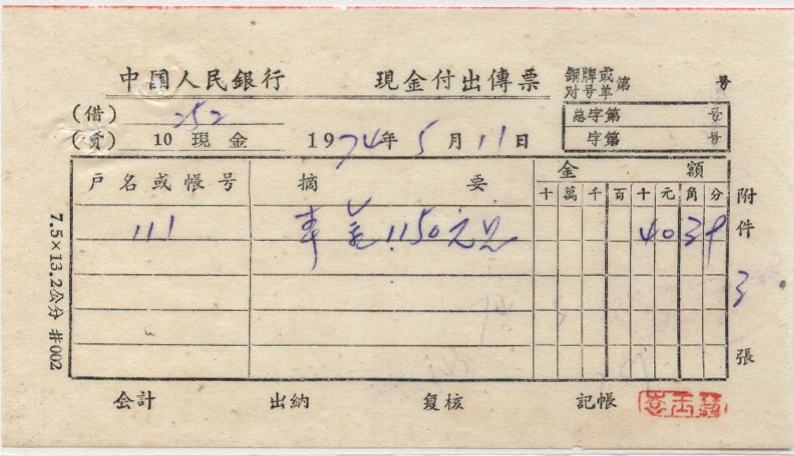 中国人民銀行 現金付出傳票 銅牌或对号单第 号
(借) 252 总字第 号
(貭) 10 現金 1974年5月11日 字第 号
戶名或帳号 摘要 金額
十萬千百十元角分
111 1150元 4039
附件3張
7.5×13.2公分 #002
会計 出納 复核 記帳